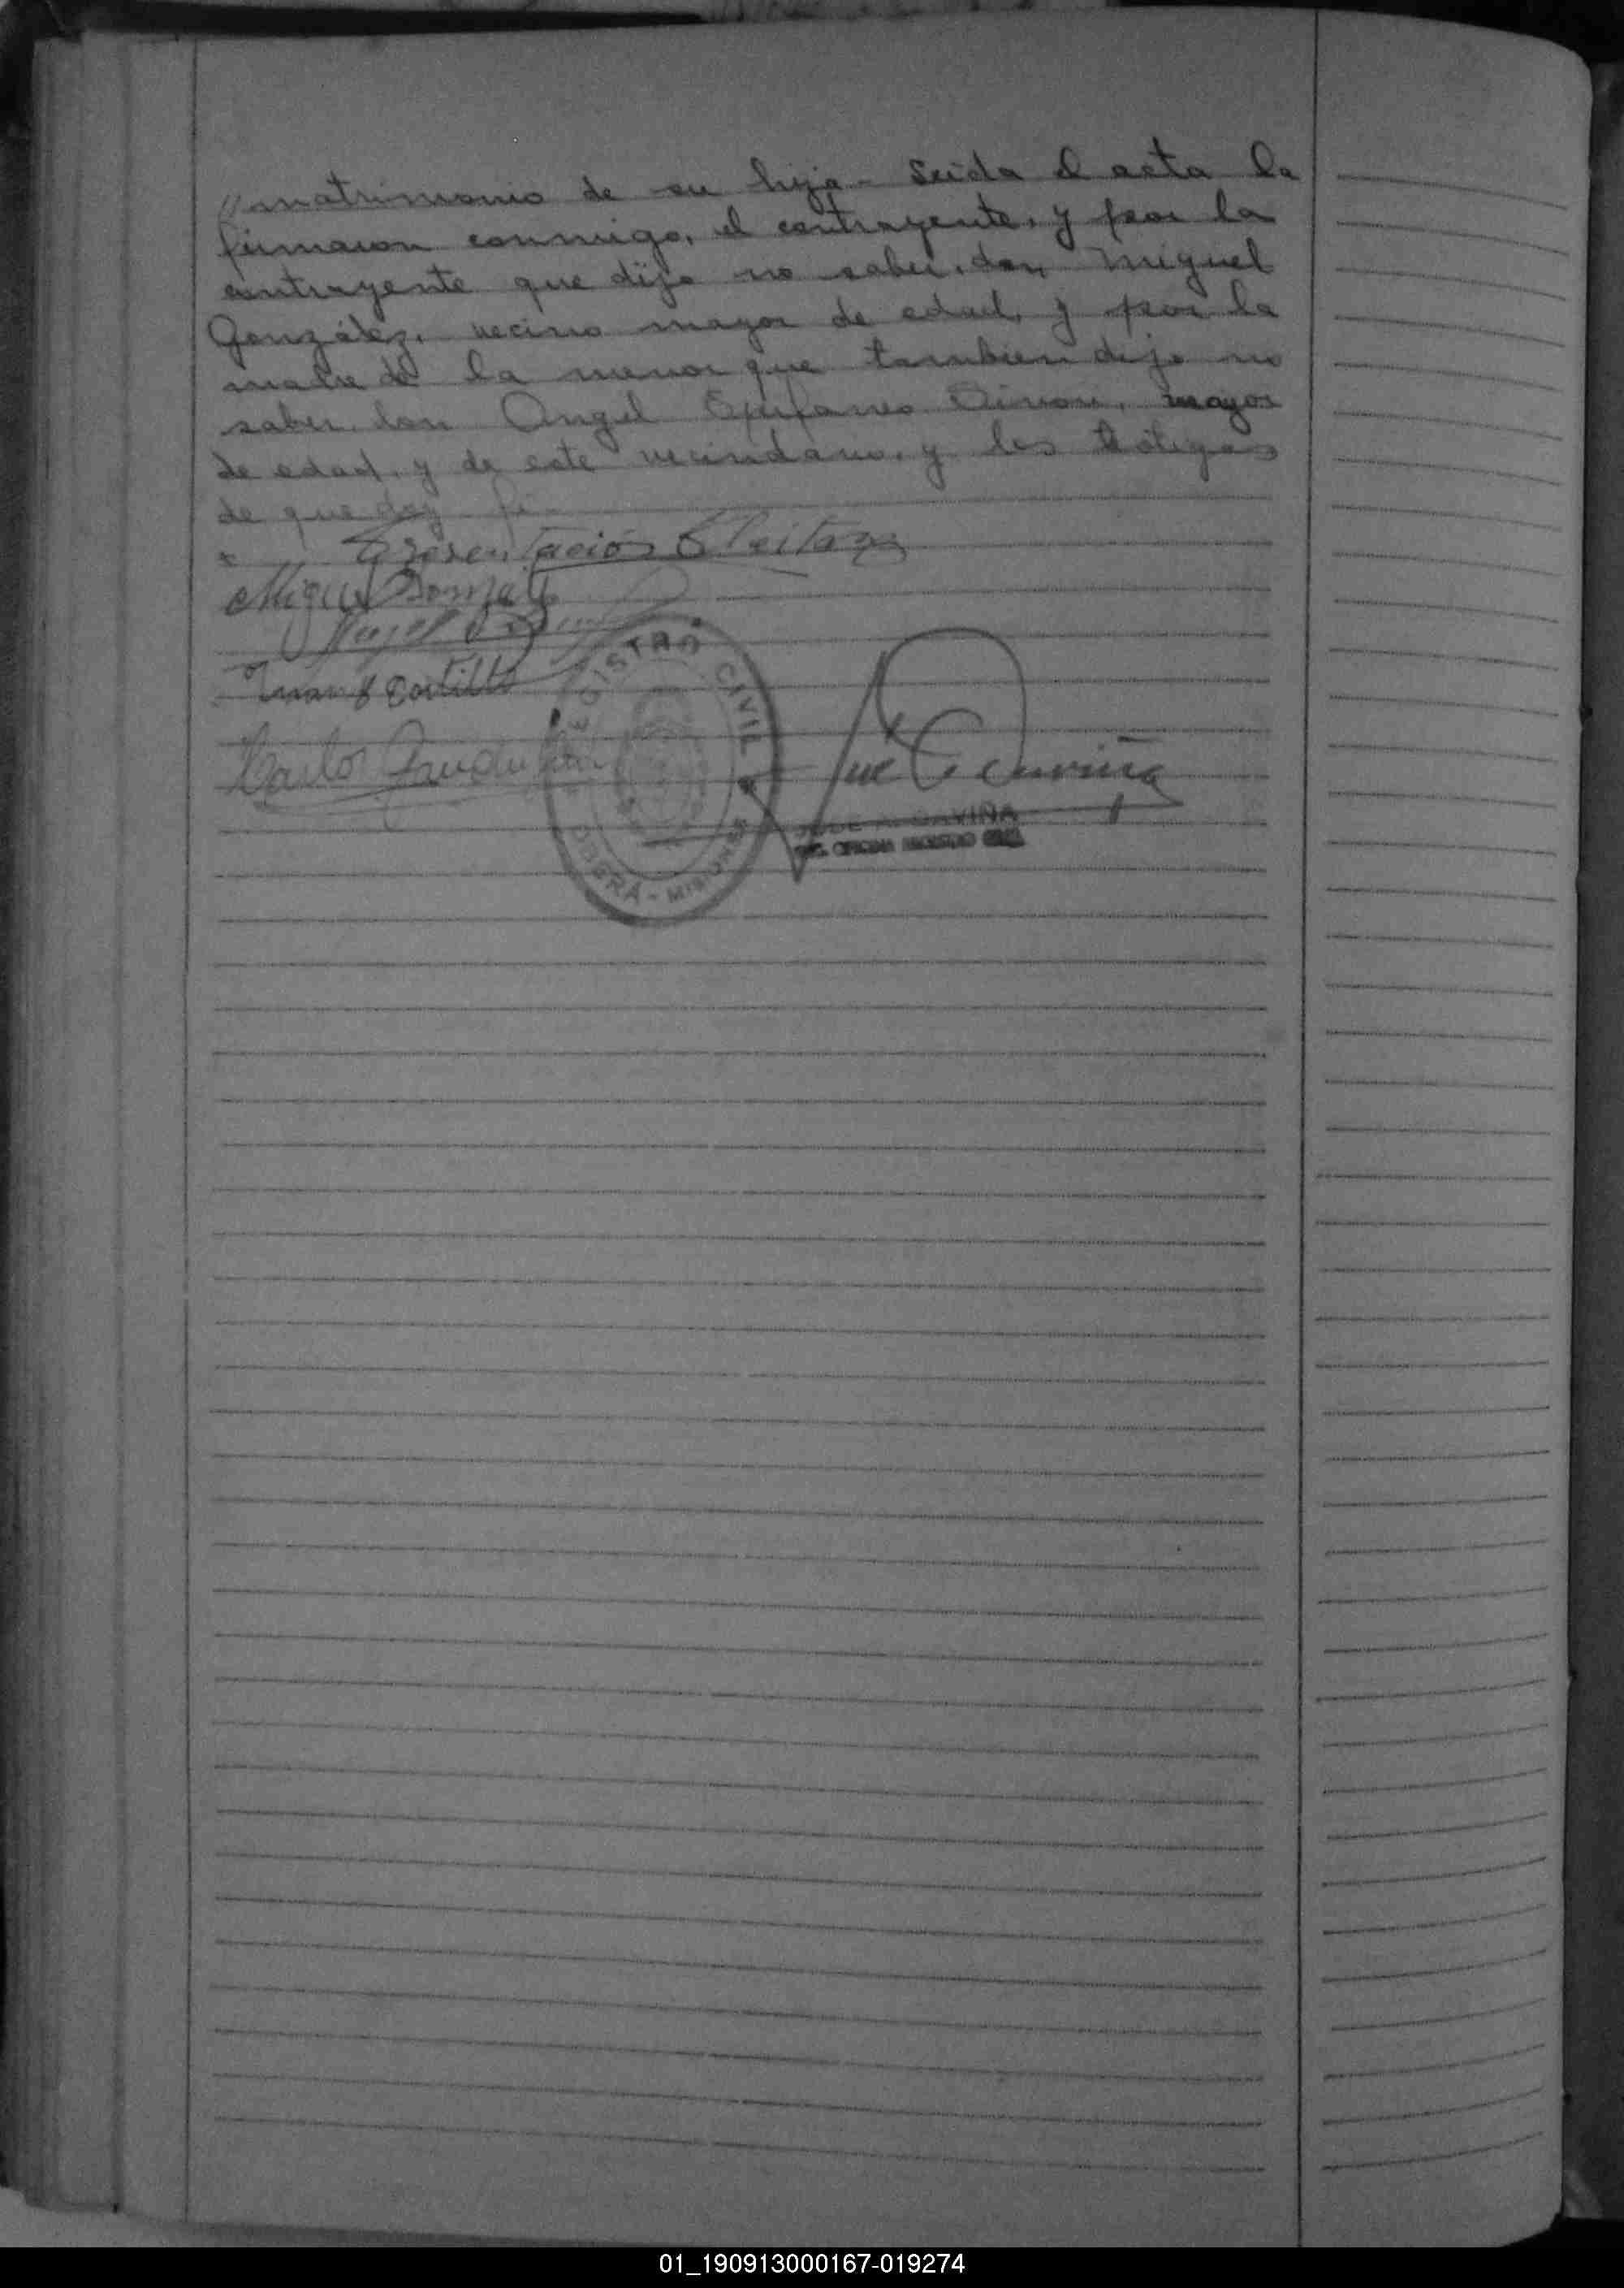 "matrimonio de su hija - Leida el acta la
firmaron conmigo, el contrayente, y por la
contrayente que dijo no saber, don Miguel
González, vecino mayor de edad, y por la
madre de la menor que tambien dijo no
saber, don Angel Epifanio, mayor
de edad, y de este vecindario, y los testigos
de que doy fé.
Presentación
Miguel Gonzalez
Angel
Juan Portillo
Carlos
José Gaviña
JOSE A. GAVIÑA
OFICINA REGISTRO CIVIL
REGISTRO CIVIL
MISIONES
01_190913000167-019274